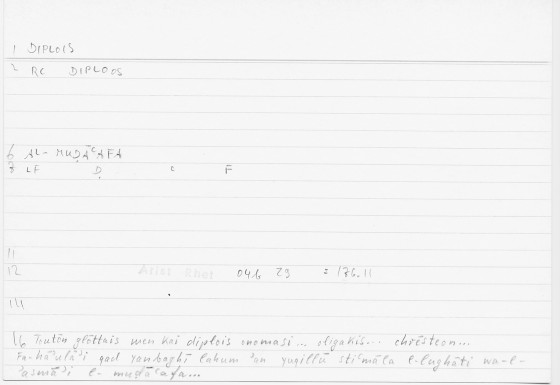 1 DIPLOIS
2 RC DIPLOOS
6 AL- MUḌĀʿAFA
8 LF Ḍ ʿ F
11
12 Arist Rhet 04b 29 = 176.11
14
16 Toutōn glōttais men kai diplois onomasi... oligakis... chrēsteon...
Fa-hāʾulāʾi qad yanbaghī lahum ʾan yuqillū stiʿmāla l-lughāti wa-l-
ʾasmāʾi l- muḍāʿafa...